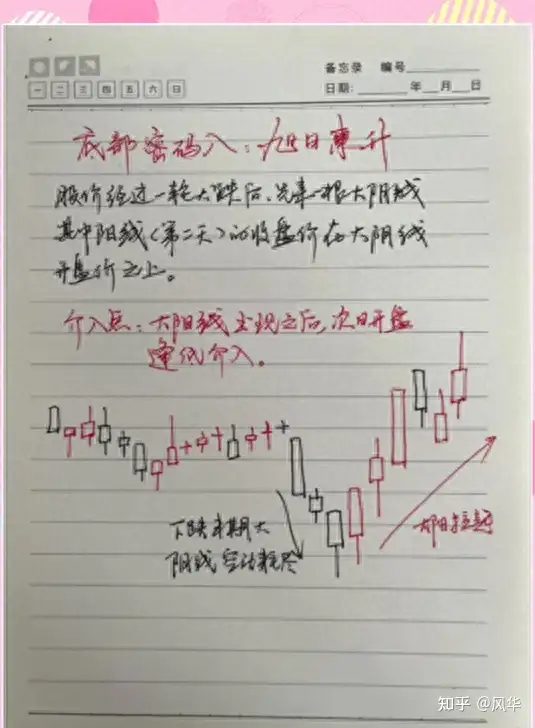 备忘录 编号
一 二 三 四 五 六 日
日期: 年 月 日
底部密码八:旭日東升
股价经过一轮大跌后、先来一根大阴线
其中阳线(第二天)的收盘价在大阴线
开盘价之上。
介入点:大阳线出现之后,次日开盘
逢低介入。
下跌末期大
阴线空动耗尽
知乎 @风华